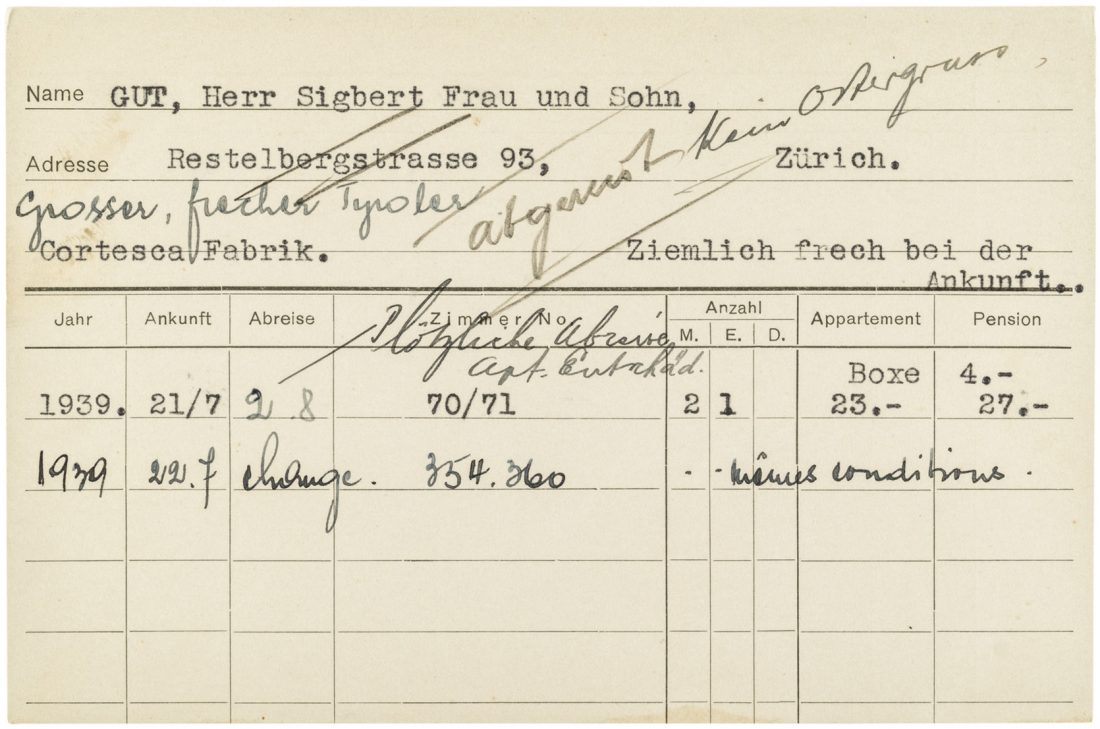 Name GUT, Herr Sigbert Frau und Sohn,
Kein Ostergruss,
Adresse Restelbergstrasse 93, Zürich.
abgereist
Grosser, frecher Tyroler
Cortesca Fabrik. Ziemlich frech bei der
Ankunft..
Jahr Ankunft Abreise Zimmer No. Anzahl Appartement Pension
M. E. D.
Plötzliche Abreise
Apt. Entschäd.
Boxe 4.-
1939. 21/7 2.8 70/71 2 1 23.- 27.-
1939 22.7 change. 354.360 - - mêmes conditions.